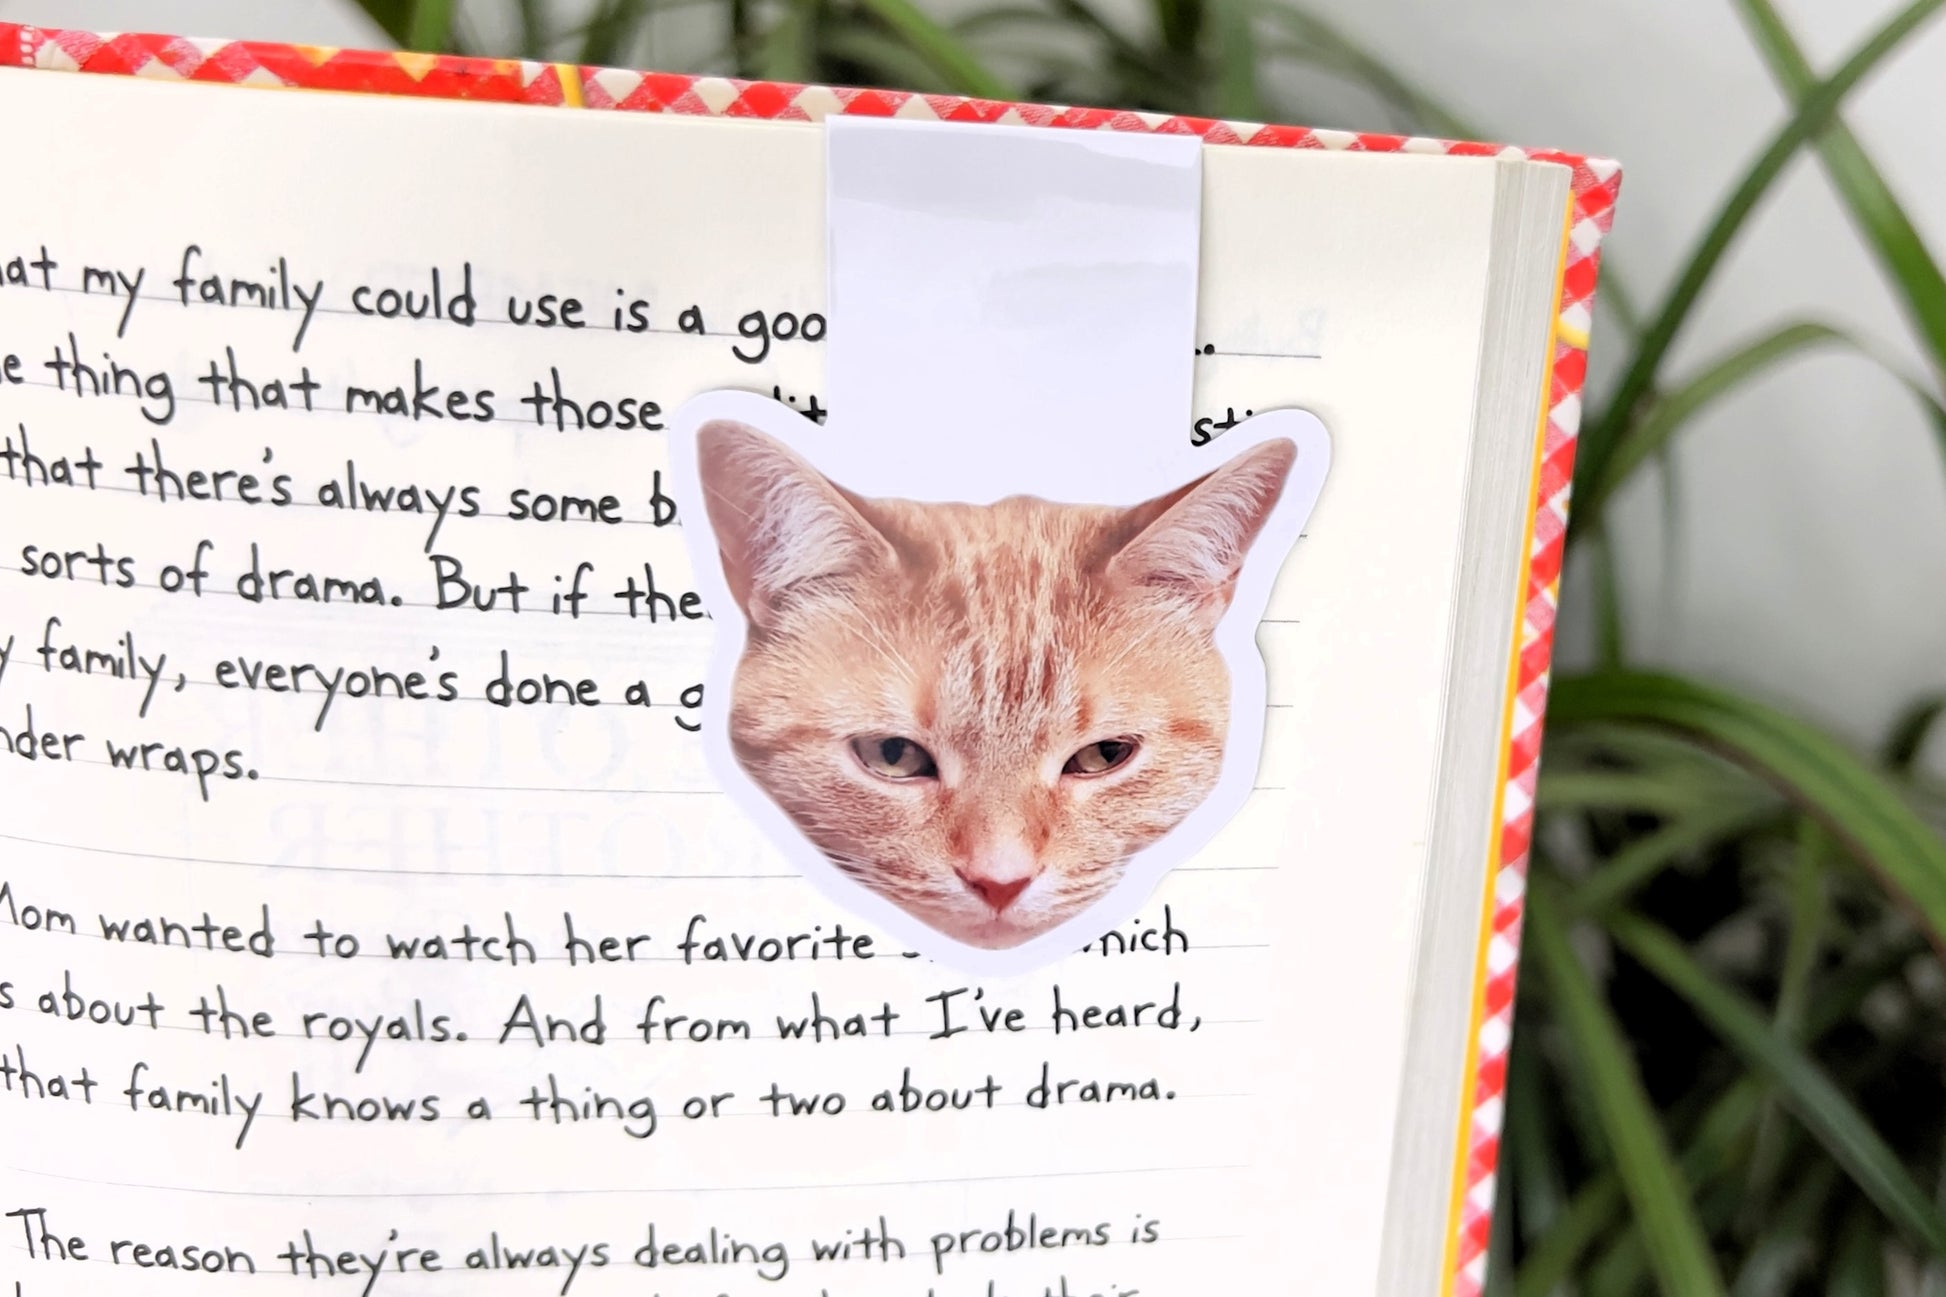 my family could use is a
thing that makes those
that there's always some
sorts of drama. But if the
family, everyone's done a
wraps.
Mom wanted to watch her favorite
about the royals. And from what I've heard,
that family knows a thing or two about drama.
The reason they're always dealing with problems is